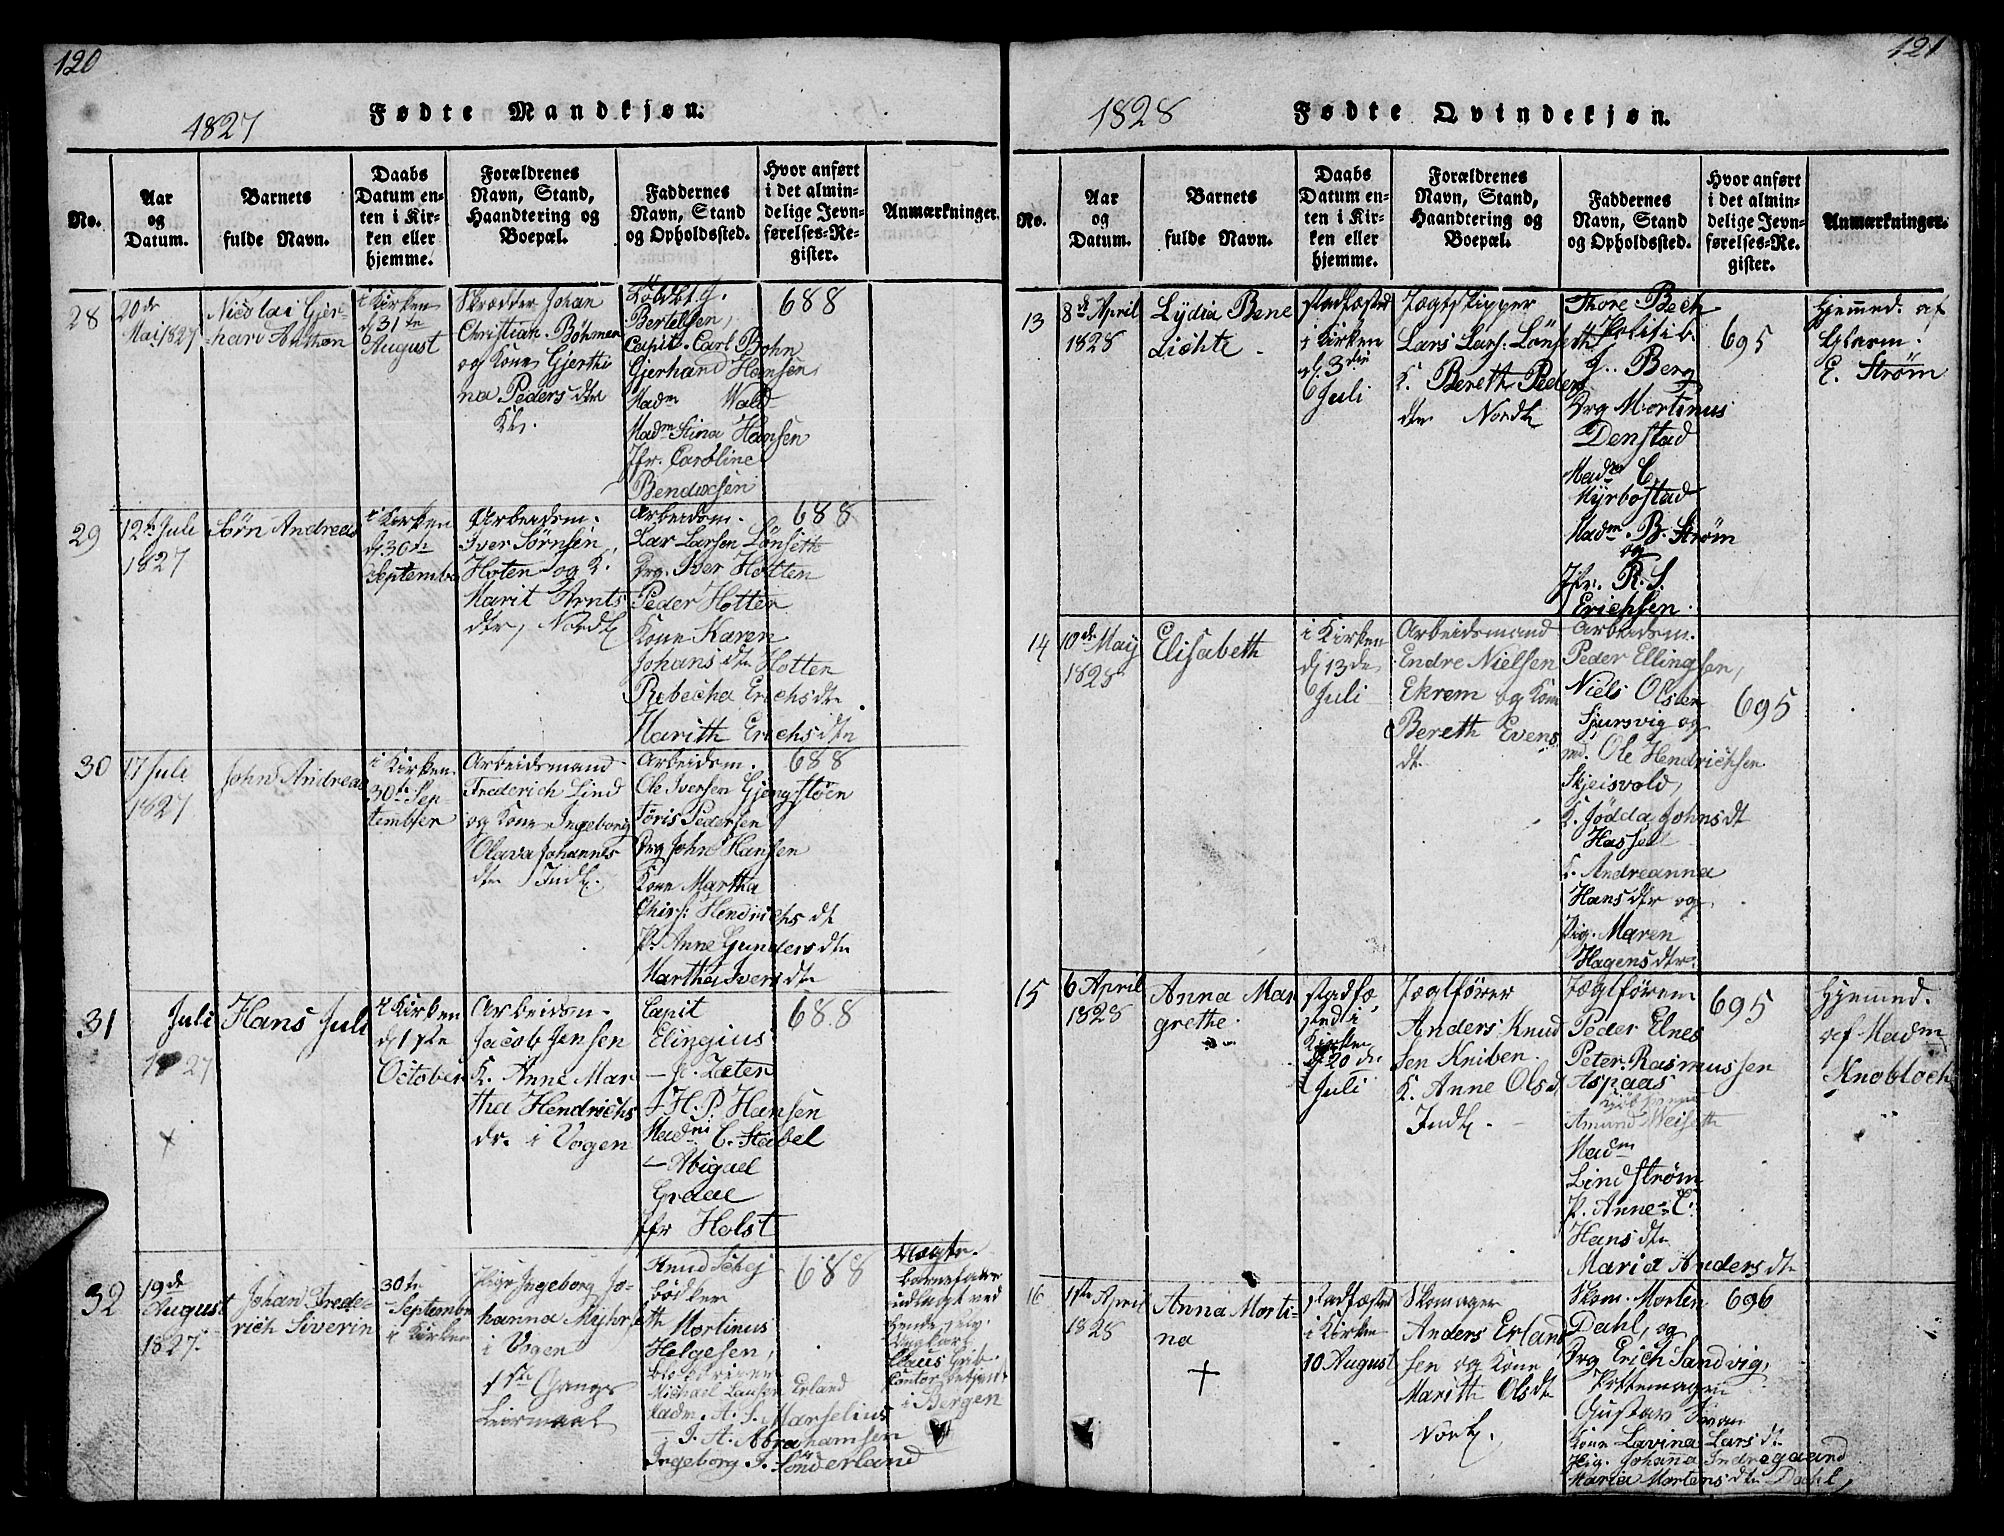 120
1827
Fødte Mandkjøn.
No.
Aar
og
Datum.
Barnets
fulde Navn.
Daabs
Datum en-
ten i Kir-
ken eller
hjemme.
Forældrenes
Navn, Stand,
Haandtering og
Boepæl.
Faddernes
Navn, Stand
og Opholdssted.
Hvor anført
i det almin-
delige Jevn-
førelses-Re-
gister.
Anmærkninger.
28
20de
Mai 1827
Nicolai Gjer-
hard Anthon
i Kirken
d 31te
August
Skrædder Johan
Christian Böhmer
og Kone Gjerthi
na Peders dtr
Kls.
J.
Bertelsen,
Capit. Carl Bohn
Gjerhard Hansen
Madm Wald
Madm Stina Hansen
Jfr. Caroline
Bendixsen
688
29
12te Juli
1827
Jörn Andreas
i Kirken
d 30te
September
Arbeidsm.
Iver Jörnsen
Hoten og K.
Marit Arnts
dtr, Nordl
Arbeidsm.
Lar Larsen Lönseth
Drg. Iver Hotten
Peder Hotten
Kone Karen
Johans dtr Hotten
Rebecha Erichs dtr
Marith Erichs dtr
688
30
17 Juli
1827
John Andreas
i Kirken
30te Sep-
tember
Arbeidsmand
Frederich Lind
og Kone Ingeborg
Olava Johannes
dtr Indl.
Arbeidsm.
Ole Iversen Gjengstöen
Joris Pedersen
Drg John Hansen
Kone Martha
Chirs: Hendrichs dt
P. Anne Gunders dtr
Martha Ivers dtr
688
31
Juli
1827
+
Hans Juli
i Kirken
d 1ste
October
Arbeidsm.
Jacob Jensen
K. Anne Mar
tha Hendrichs
dr. i Vogen
Capit
Elingius
J. H. P. Hansen
Madm C. Stabel
— Abigael
Graae
Jfr Holst
688
32
19de
August
1827.
Johan Frede-
rich Siverin
30te
Septembr
i Kirken
Pige Ingeborg Jo-
hanna Myhre
i Vogen
1ste Gangs
Leiermaal
Knud Schej
bödker
Mortinus
Helgesen,
Michael Lausen Erland
Madm. A. S. Marselius
— J. A. Abrahamsen
Ingeborg J. Sönderland
688
Barnefader
udlagt ved
Ungkarl
Claus Grib
Contorbetjent
i Bergen
121
1828
Fødte Qvindekjøn.
No.
Aar
og
Datum.
Barnets
fulde Navn.
Daabs
Datum en-
ten i Kir-
ken eller
hjemme.
Forældrenes
Navn, Stand,
Haandtering og
Boepæl.
Faddernes
Navn, Stand
og Opholdssted.
Hvor anført
i det almin-
delige Jevn-
førelses-Re-
gister.
Anmærkninger.
13
8de April
1828
Lydia Bene
Lichte
stadfæstet
i Kirken
d. 3die
Juli
Jægtskipper
Lars Lars: Lönseth
K. Bereth Peders
dtr Nordl
Thore Bech
Politib.
J. Berg
Drg Mortinus
Denstad
Madm C.
Myrbostad
Madm B. Ström
og
Jfr. R. S.
Erichsen.
695
Hjemmed. af
Gl.
E. Ström
14
10de May
1828
Elisabeth
i Kirken
d 13de
Juli
Arbeidsmand
Endre Nielsen
Ekrem og Kone
Bereth Evens
dt.
Arbeidsm.
Peder Ellingsen,
Niels Olsen
Sjursvig og
md. Ole Hendrichsen
Skjeisvold,
K. Jödda Johns dt
Hassel
K. Andreanna
Hans dtr og
Pig. Maren
Hagens dtr.
695
15
6 April
1828
Anna Mar
grethe.
stadfæ
sted i
Kirken
d 20de
Juli
Jægtförer
Anders Knud
sen Kniben.
K. Anne Olsdt
Indl.
Jægtförere
Peder Elnes
Peter Rasmussen
Aspaas
Amund Weiseth
Madm
Lindström
P. Anne C.
Hans dtr
Maria Anders dtr
695
Hjemmed.
af Madm
Knobloch
16
1ste April
1828
Anna Morti-
na
+
stadfæstet
i Kirken
10 August
Skomager
Anders Erland
sen og Kone
Marith Ols dtr
Nordl.
Skom. Morten
Dahl, og
Drg Erich Sandvig,
Pottemager
Gustav Svan
Kone Lavina Lars dt
Pig. Johanna Indregaard
Maria Mortens dtr Dahl,
696